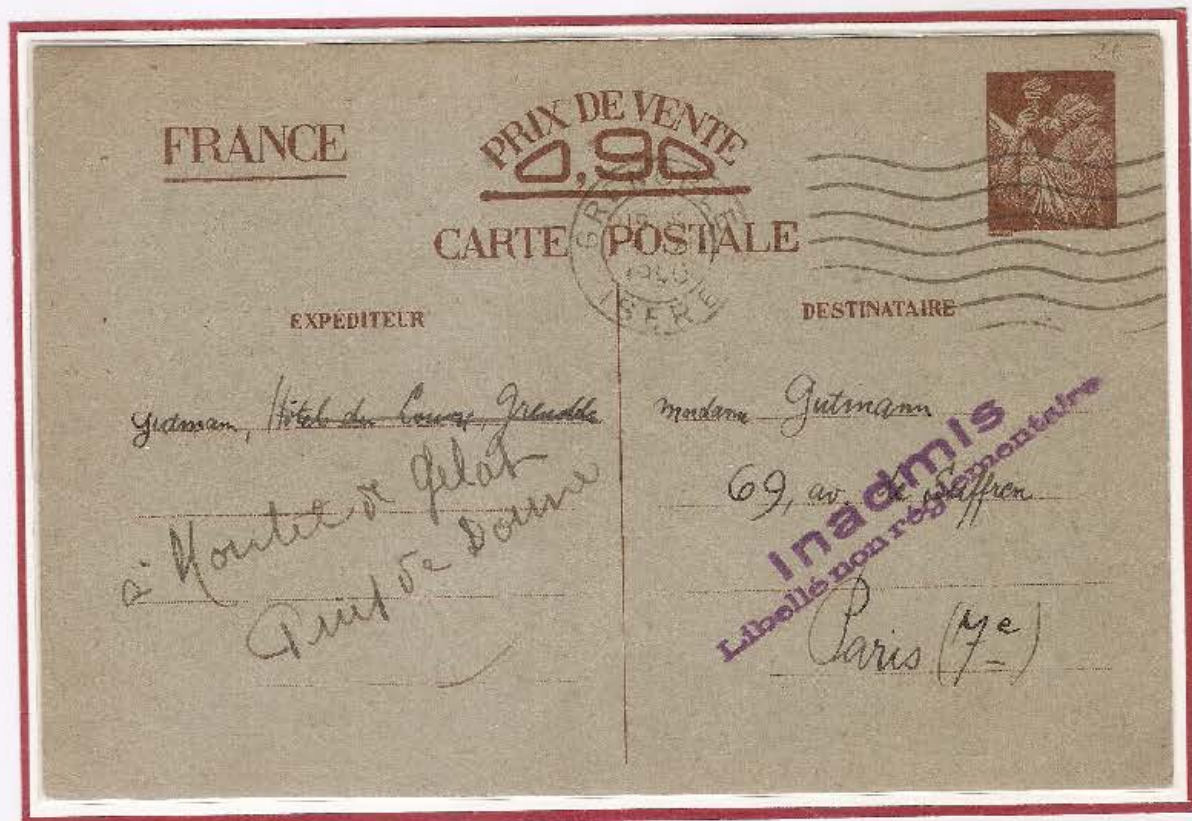 FRANCE
PRIX DE VENTE
0,90
CARTE POSTALE
GRENOBLE
1940
ISERE
EXPÉDITEUR
Gutmann, Hôtel du Cours, Grenoble
à Montel de Gelat
Puy de Dome
DESTINATAIRE
Madame Gutmann
69, av. de Suffren
Paris (7e)
Inadmis
Libellé non réglementaire